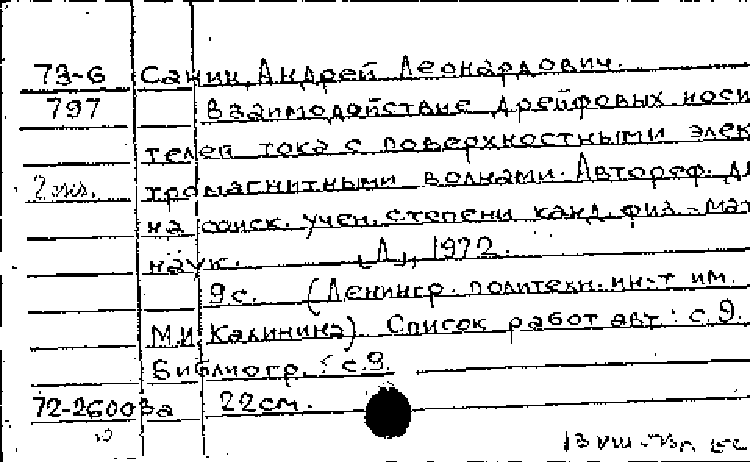 73-6 Санин, Андрей Леонардович.
797 Взаимодействие дрейфовых носи
телей тока с поверхностными элек
2 экз. тромагнитными волнами. Автореф. д
на соиск. учен. степени канд. физ.-мат
наук. [Л], 1972.
9 с. (Ленингр. политехн. ин-т им.
М.И. Калинина). Список работ авт: с. 9.
Библиогр.: с. 9.
72-26003а 22 см.
13 VIII